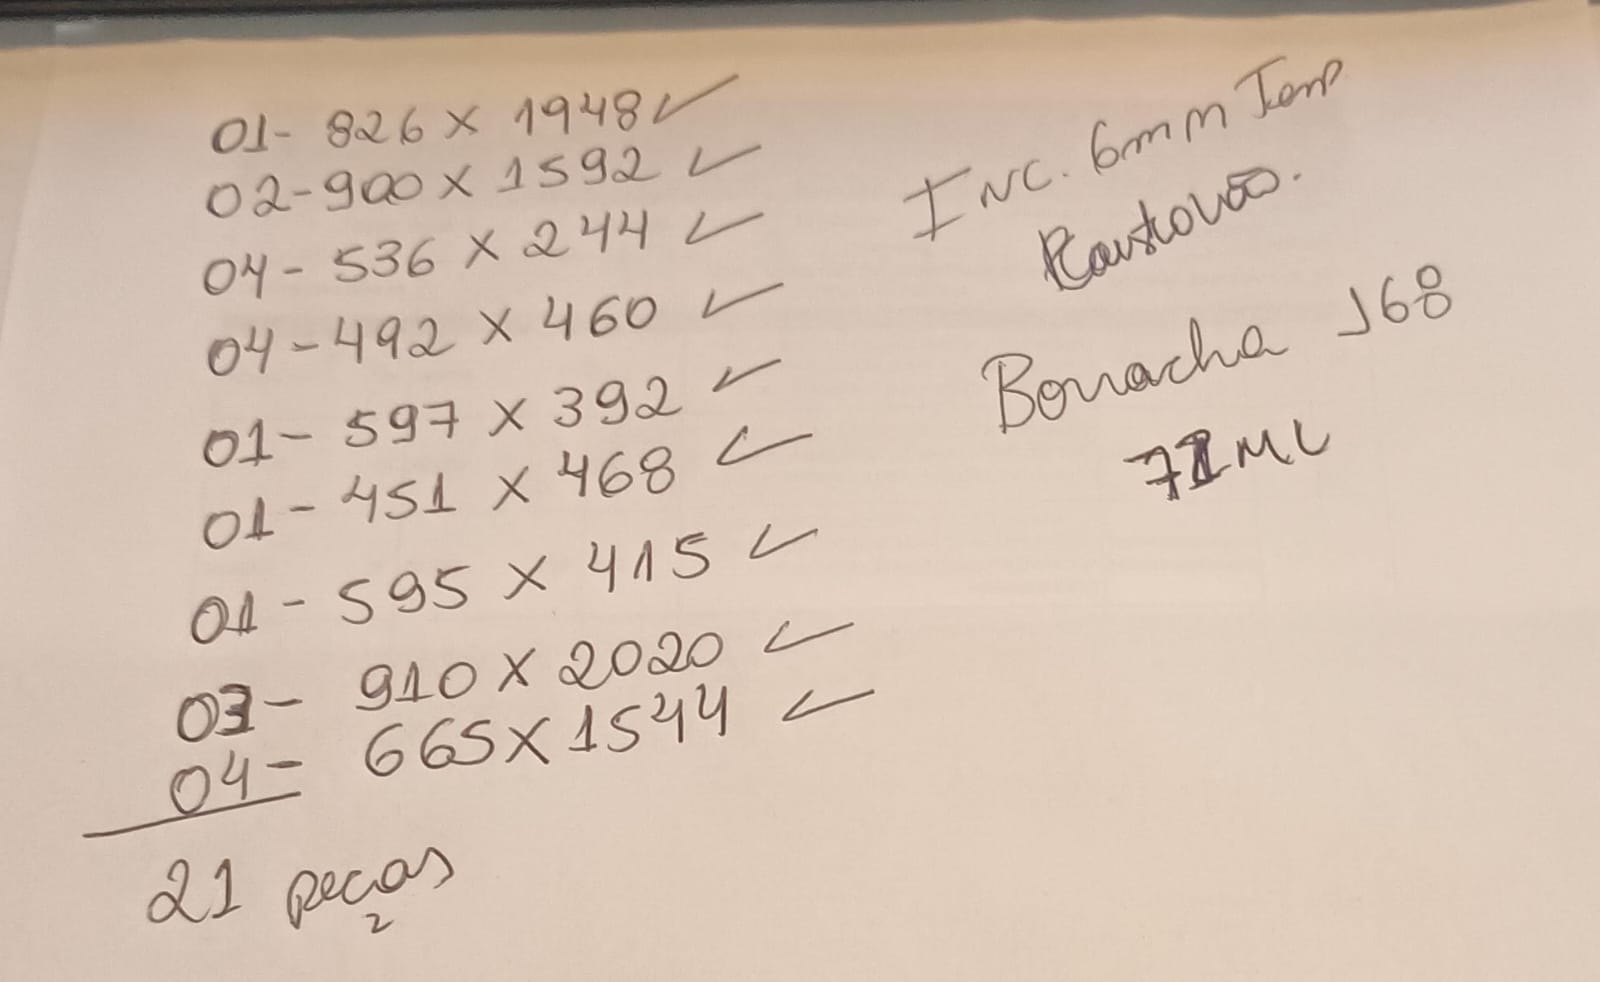 01- 826 x 1948 ✓
02- 900 x 1592 ✓
04- 536 x 244 ✓
04- 492 x 460 ✓
01- 597 x 392 ✓
01- 451 x 468 ✓
01- 595 x 415 ✓
03- 910 x 2020 ✓
04- 665 x 1544 ✓
21 peças
INC. 6mm Temp
Borracha J68
71 ML